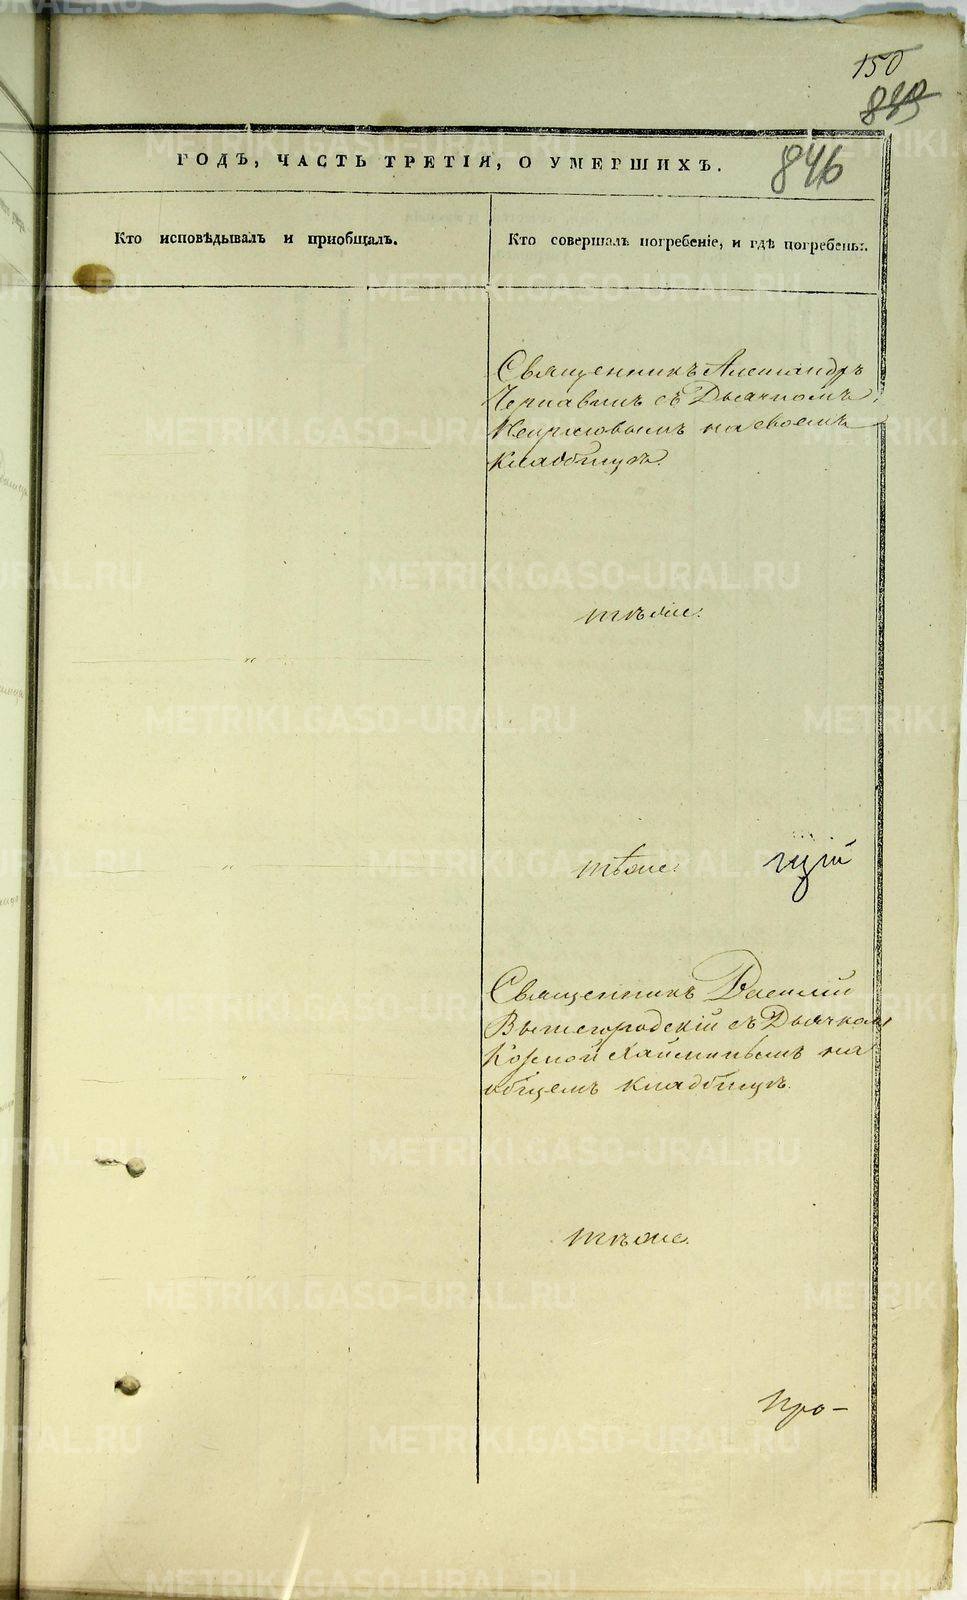 150
846
ГОДЪ, ЧАСТЬ ТРЕТІЯ, О УМЕРШИХЪ.
Кто исповѣдывалъ и пріобщалъ.
Кто совершалъ погребеніе, и гдѣ погребены.
Священникъ Александръ
съ Дьячкомъ
на своемъ
кладбищѣ.
тѣже.
тѣже.
щій
Священникъ Василій
Вышегородскій съ Дьячкомъ
Козмой на
общемъ кладбищѣ.
тѣже.
Про-
METRIKI.GASO-URAL.RU